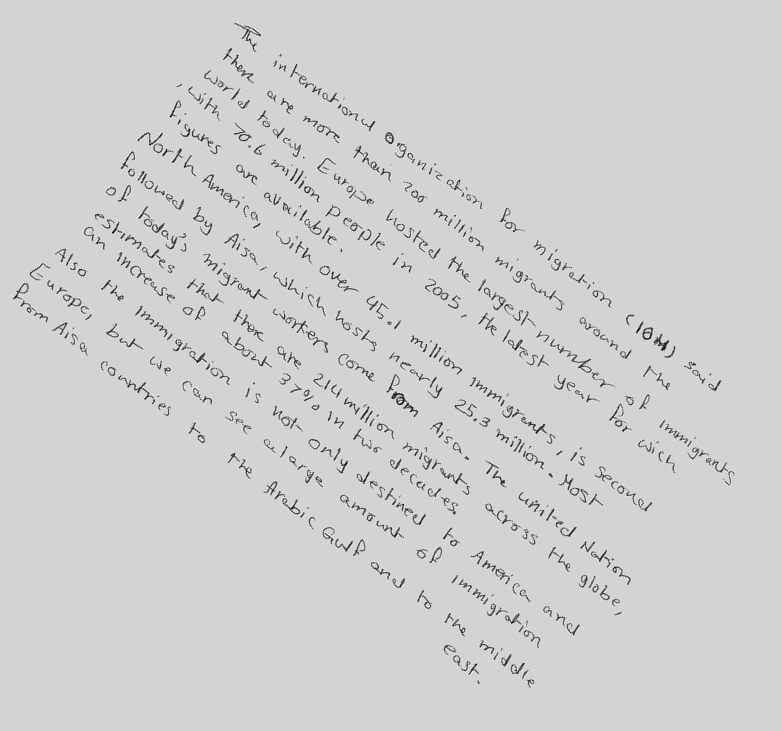 The international Organization for migration (IOM) said
there are more than 200 million migrants around the
world today. Europe hosted the largest number of immigrants
, with 70.6 million people in 2005, the latest year for wich
figures are available.
North America, with over 45.1 million immigrants, is second
followed by Aisa, which hosts nearly 25.3 million. Most
of today's migrant workers come from Aisa. The united Nation
estimates that there are 214 million migrants across the globe,
an increase of about 37% in two decades.
Also the immigration is not only destined to America and
Europe, but we can see a large amount of immigration
from Aisa countries to the Arabic Gulf and to the middle
east.